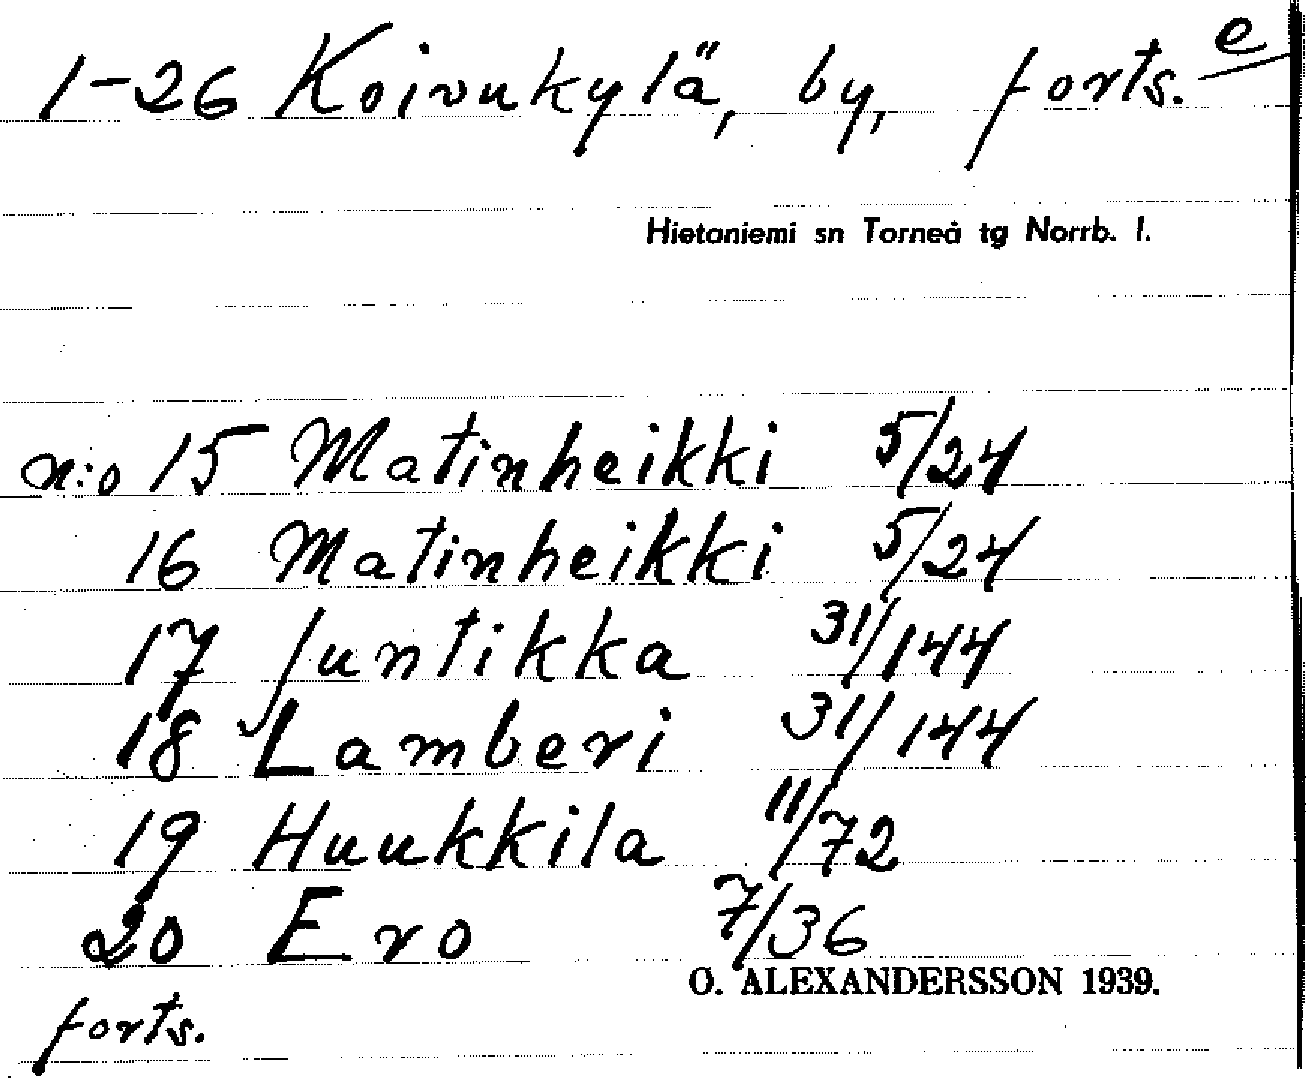 e
1-26 Koivukylä, by, forts.
Hietaniemi sn Torneå tg Norrb. l.
n:o 15 Matinheikki 5/24
16 Matinheikki 5/24
17 Juntikka 31/144
18 Lamberi 31/144
19 Huukkila 11/72
20 Ero 7/36
O. ALEXANDERSSON 1939.
forts.